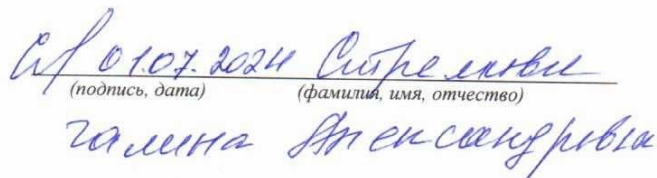 01.07.2024 Стрелкова
(подпись, дата) (фамилия, имя, отчество)
Галина Александровна